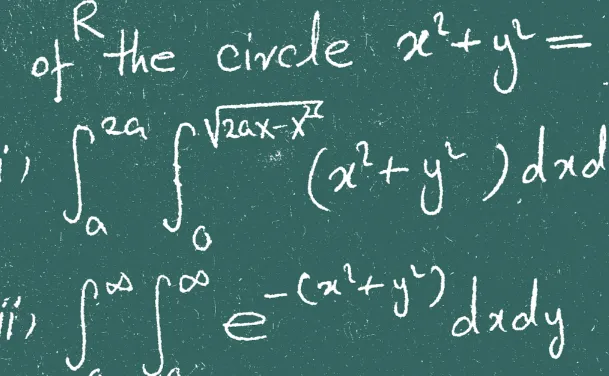 R
of the circle x²+y²=
i) ∫ₐ²ᵃ ∫₀^√(2ax-x²) (x²+y²) dxd
ii) ∫ₐ^∞ ∫ₐ^∞ e^-(x²+y²) dxdy